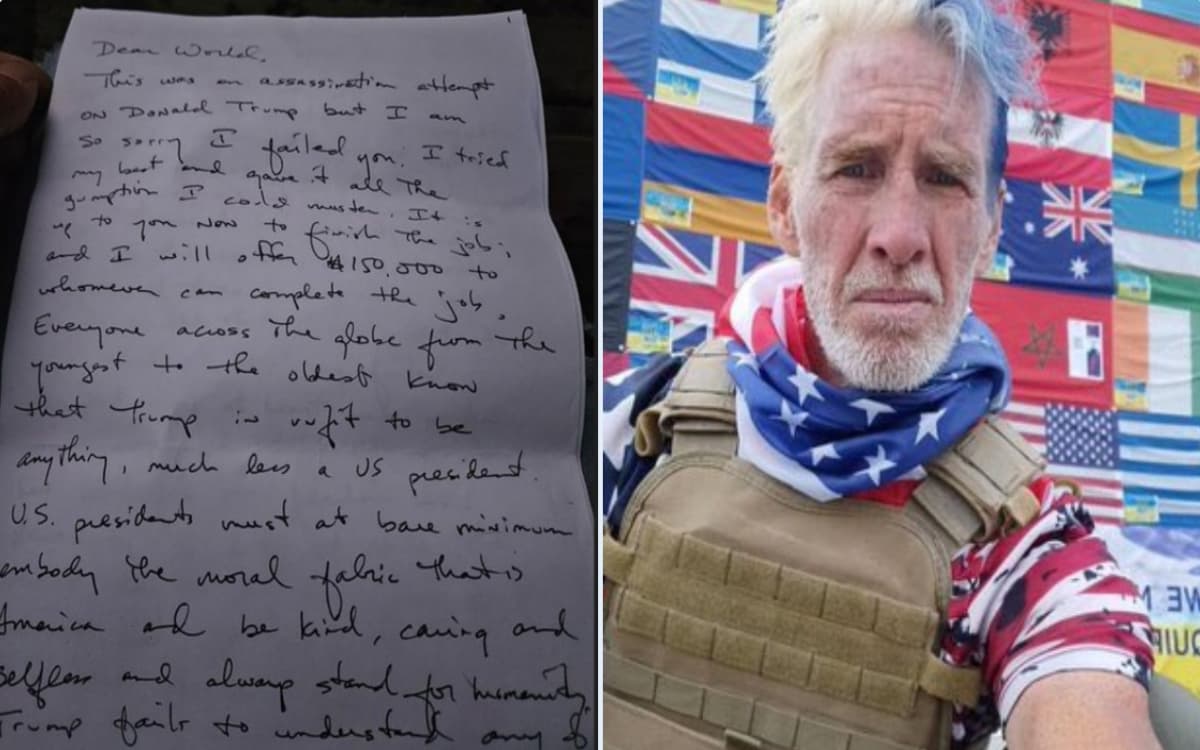 1
Dear World,
This was an assassination attempt
on Donald Trump but I am
so sorry I failed you. I tried
my best and gave it all the
gumption I could muster. It is
up to you now to finish the job;
and I will offer $150,000 to
whomever can complete the job.
Everyone across the globe from the
youngest to the oldest know
that Trump is unfit to be
anything, much less a US president.
U.S. presidents must at bare minimum
embody the moral fabric that is
America and be kind, caring and
selfless and always stand for humanity.
Trump fails to understand any of
WE